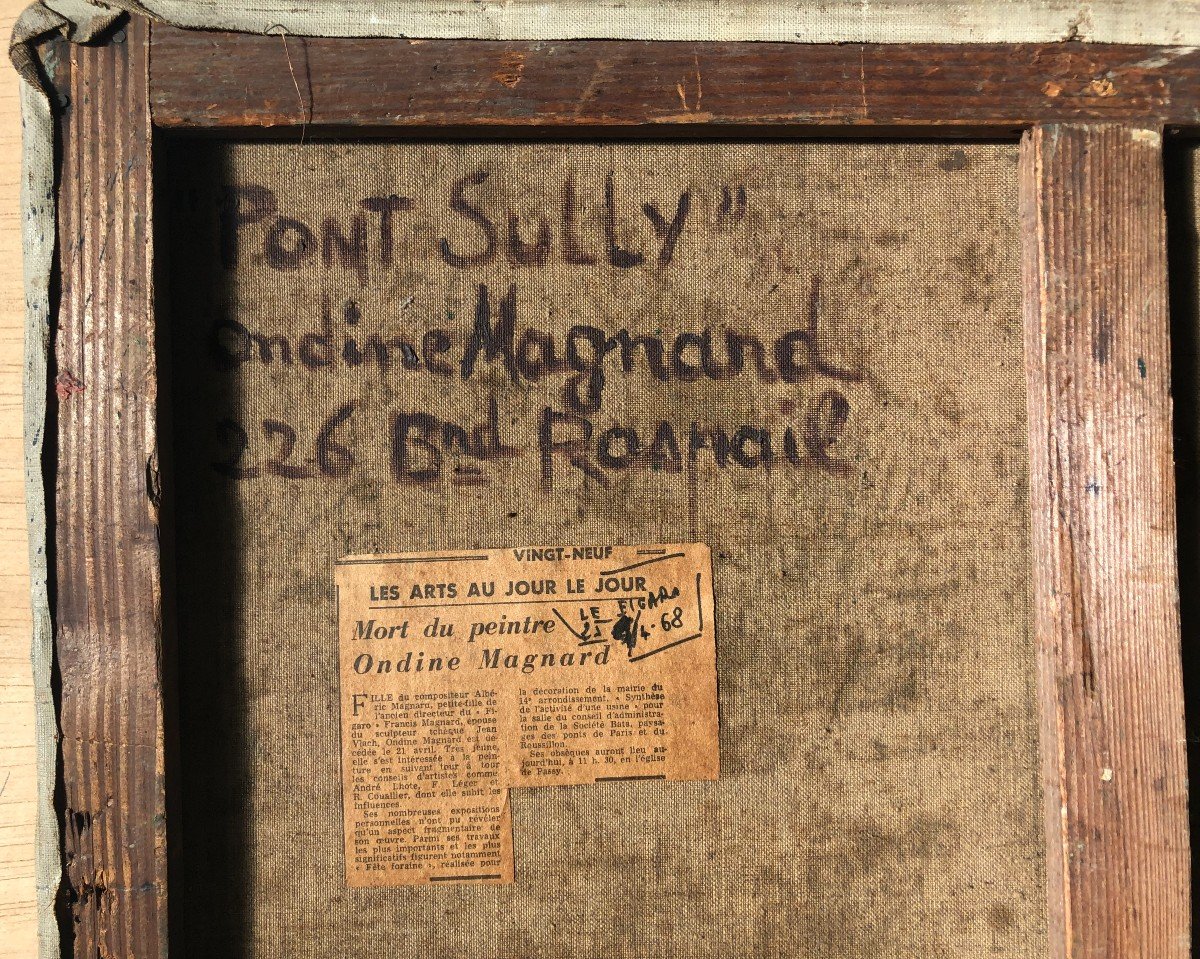 "PONT SULLY"
Ondine Magnard
226 Bnd Raspail
VINGT-NEUF
LES ARTS AU JOUR LE JOUR
Mort du peintre
Ondine Magnard
LE FIGARO
4.68
FILLE du compositeur Albé-
ric Magnard, petite-fille de
l'ancien directeur du « Fi-
garo » Francis Magnard, épouse
du sculpteur tchèque Jean
Vlach, Ondine Magnard est dé-
cédée le 21 avril. Très jeune,
elle s'est intéressée à la pein-
ture en suivant tour à tour
les conseils d'artistes comme
André Lhote, F. Léger et
R. Couallier, dont elle subit les
influences.
Ses nombreuses expositions
personnelles n'ont pu révéler
qu'un aspect fragmentaire de
son œuvre. Parmi ses travaux
les plus importants et les plus
significatifs figurent notamment
« Fête foraine », réalisée pour
la décoration de la mairie du
14e arrondissement, « Synthèse
de l'activité d'une usine » pour
la salle du conseil d'administra-
tion de la Société Bata, paysa-
ges des ponts de Paris et du
Roussillon.
Ses obsèques auront lieu au-
jourd'hui, à 11 h. 30, en l'église
de Passy.